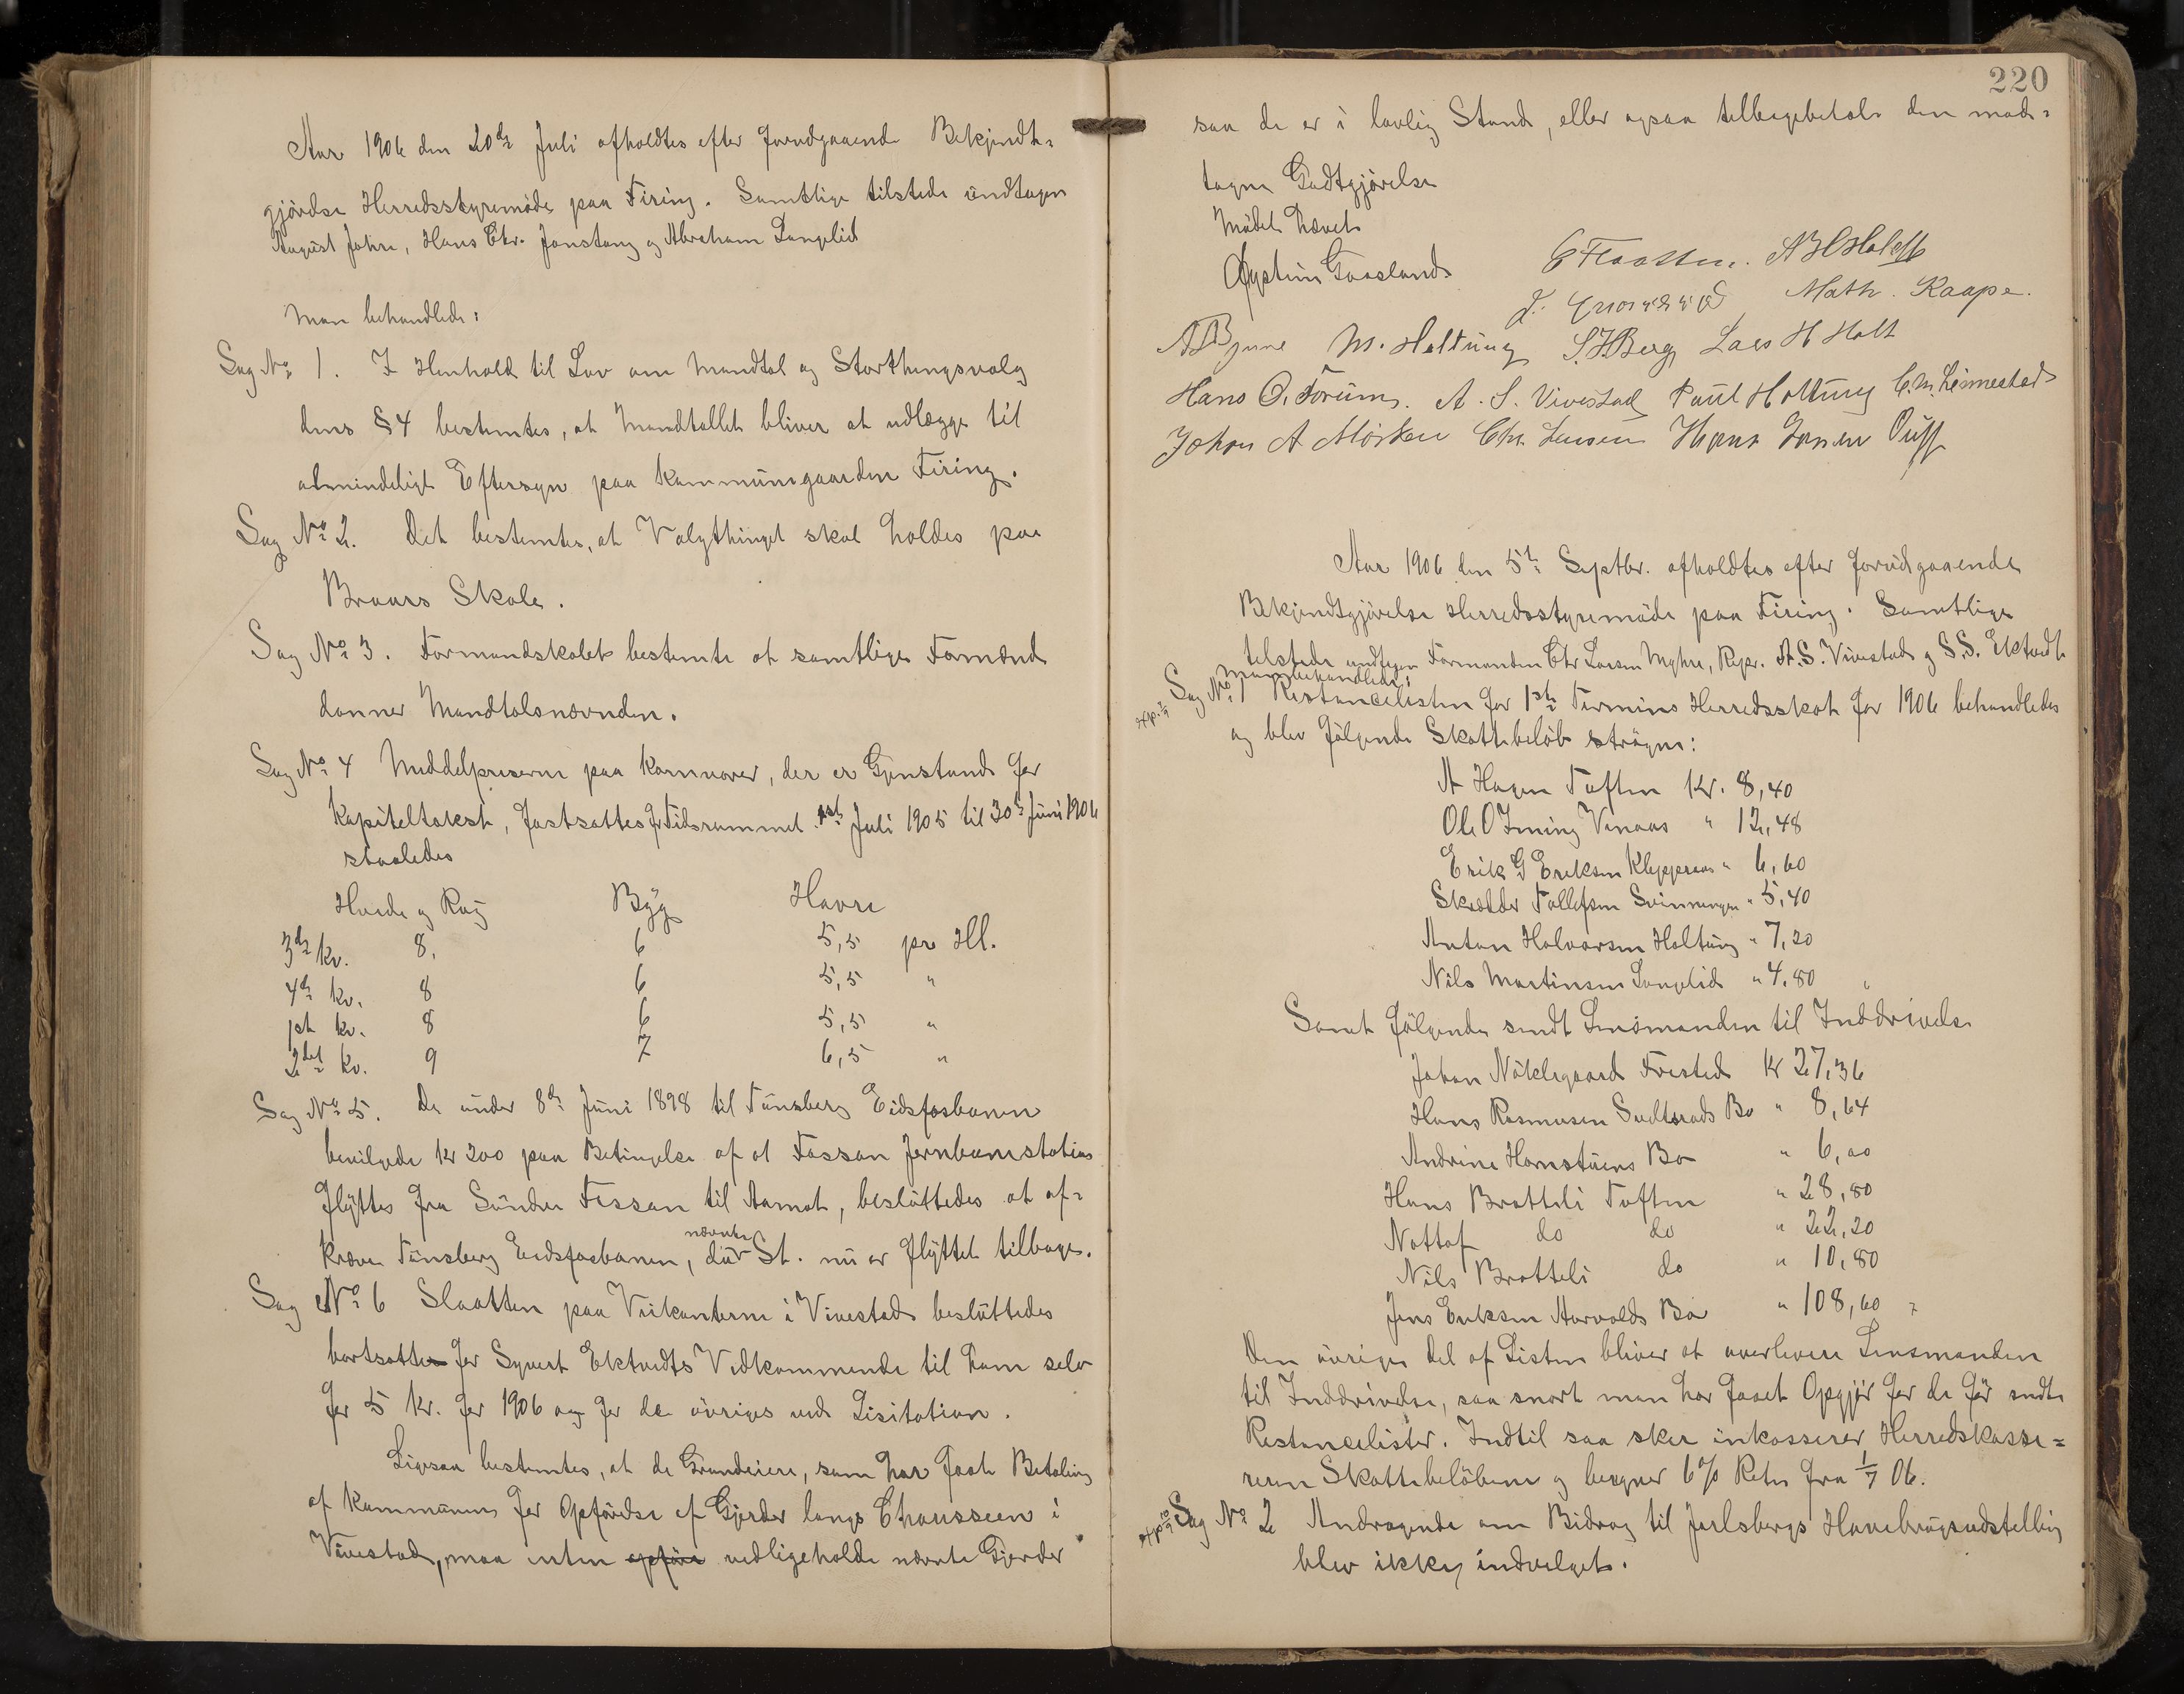 Aar 1906 den 20de Juli afholdtes efter forudgaaende Bekjendt-
gjörelse Herredsstyremöde paa Firing. Samtlige tilstede undtagen
August Jahre, Hans Chr. Jonstang og Abraham Langelid
Man behandlede:
Sag No 1. I Henhold til Lov om Mandtal og Storthingsvalg
dens § 4 bestemtes, at Mandtallet bliver at udlægge til
almindeligt Eftersyn paa Kommunegaarden Firing.
Sag No 2. Det bestemtes, at Valgthinget skal holdes paa
Braars Skole.
Sag No 3. Formandskabet bestemte at samtlige Formænd
danner Mandtalsnævnden.
Sag No 4 Middelpriserne paa Kornvarer, der er Gjenstand for
Kapiteltakst, fastsattes for Tidsrummet 1ste Juli 1905 til 30te Juni 1906
saaledes
Hvede og Rug Byg Havre
3die kv. 8, 6 5,5 pr Hl.
4de kv. 8 6 5,5 "
1ste kv. 8 6 5,5 "
2det kv. 9 7 6,5 "
Sag No 5. De under 8de Juni 1898 til Tünsberg Eidsfosbanen
bevilgede Kr 200 paa Betingelse af at Fossan Jernbanestation
flyttes fra Söndre Fossan til Aamot, besluttedes at af-
kræve Tünsberg Eidsfosbanen, da nævnte St. nu er flyttet tilbage.
Sag No 6 Slaatten paa Veikanterne i Vivestad besluttedes
bortsatte for Syvert Ektvedts Vedkommende til ham selv
for 5 Kr. for 1906 og for de övriges ved Lisitation.
Ligesaa bestemtes, at de Grundeiere, som har faaet Betaling
af Kommunen for Opförelse af Gjerder langs Chausseen i
Vivestad, maa enten opföre vedligeholde nævnte Gjerder
220
saa de er i lovlig Stand, eller ogsaa tilbagebetale den mod-
tagne Godtgjörelse
Mödet hævet
Øystein Gaasland C Flaatten. A H Holt
Math. Kaape.
A B M. Holtung S. H Berg Lars H Holt
Hans O. Forum. A. S. Vivestad Paul Holtung C. M. Linnestad
Johan A Mörken Chr. Larsen Hans
Aar 1906 den 5te Septbr. afholdtes efter forudgaaende
Bekjendtgjörelse Herredsstyremöde paa Firing. Samtlige
tilstede undtagen Formanden Chr Larsen Myhre, Repr. A. S. Vivestad og S. S. Ektvedt
Man behandlede:
Sag No 1 Restancelisten for 1ste Termins Herredsskat for 1906 behandledes
og blev fölgende Skattebelöb strögne:
A Hagen Toften Kr. 8,40
Ole O Vinaas " 12,48
Erik G Eriksen Klopperaas " 6,60
Skrædder Tollefsen Svinningen " 5,40
Anton Halvorsen Holtung " 7,20
Nils Martinsen Langelid " 4,80
Samt fölgende sendt Lensmanden til Inddrivelse
Johan Nöklegaard Frested Kr 27,36
Hans Rasmusen Bo " 8,64
Andrine Hornstuens Bo " 6,00
Hans Bratteli Toften " 28,80
Nottof do do " 22,20
Nils Bratteli do " 10,80
Jens Eriksen Aarvolds Bo " 108,60
Den övrige del af Listen bliver at overlevere Lensmanden
til Inddrivelse, saa snart man har faaet Opgjör for de för sendte
Restancelister. Indtil saa sker inkasserer Herredskasse-
reren Skattebelöbene og beregner 6% Rente fra 1/7 06.
Sag No 2 Andragende om Bidrag til Jarlsbergs Havebrugsudstelling
blev ikke indvilget.